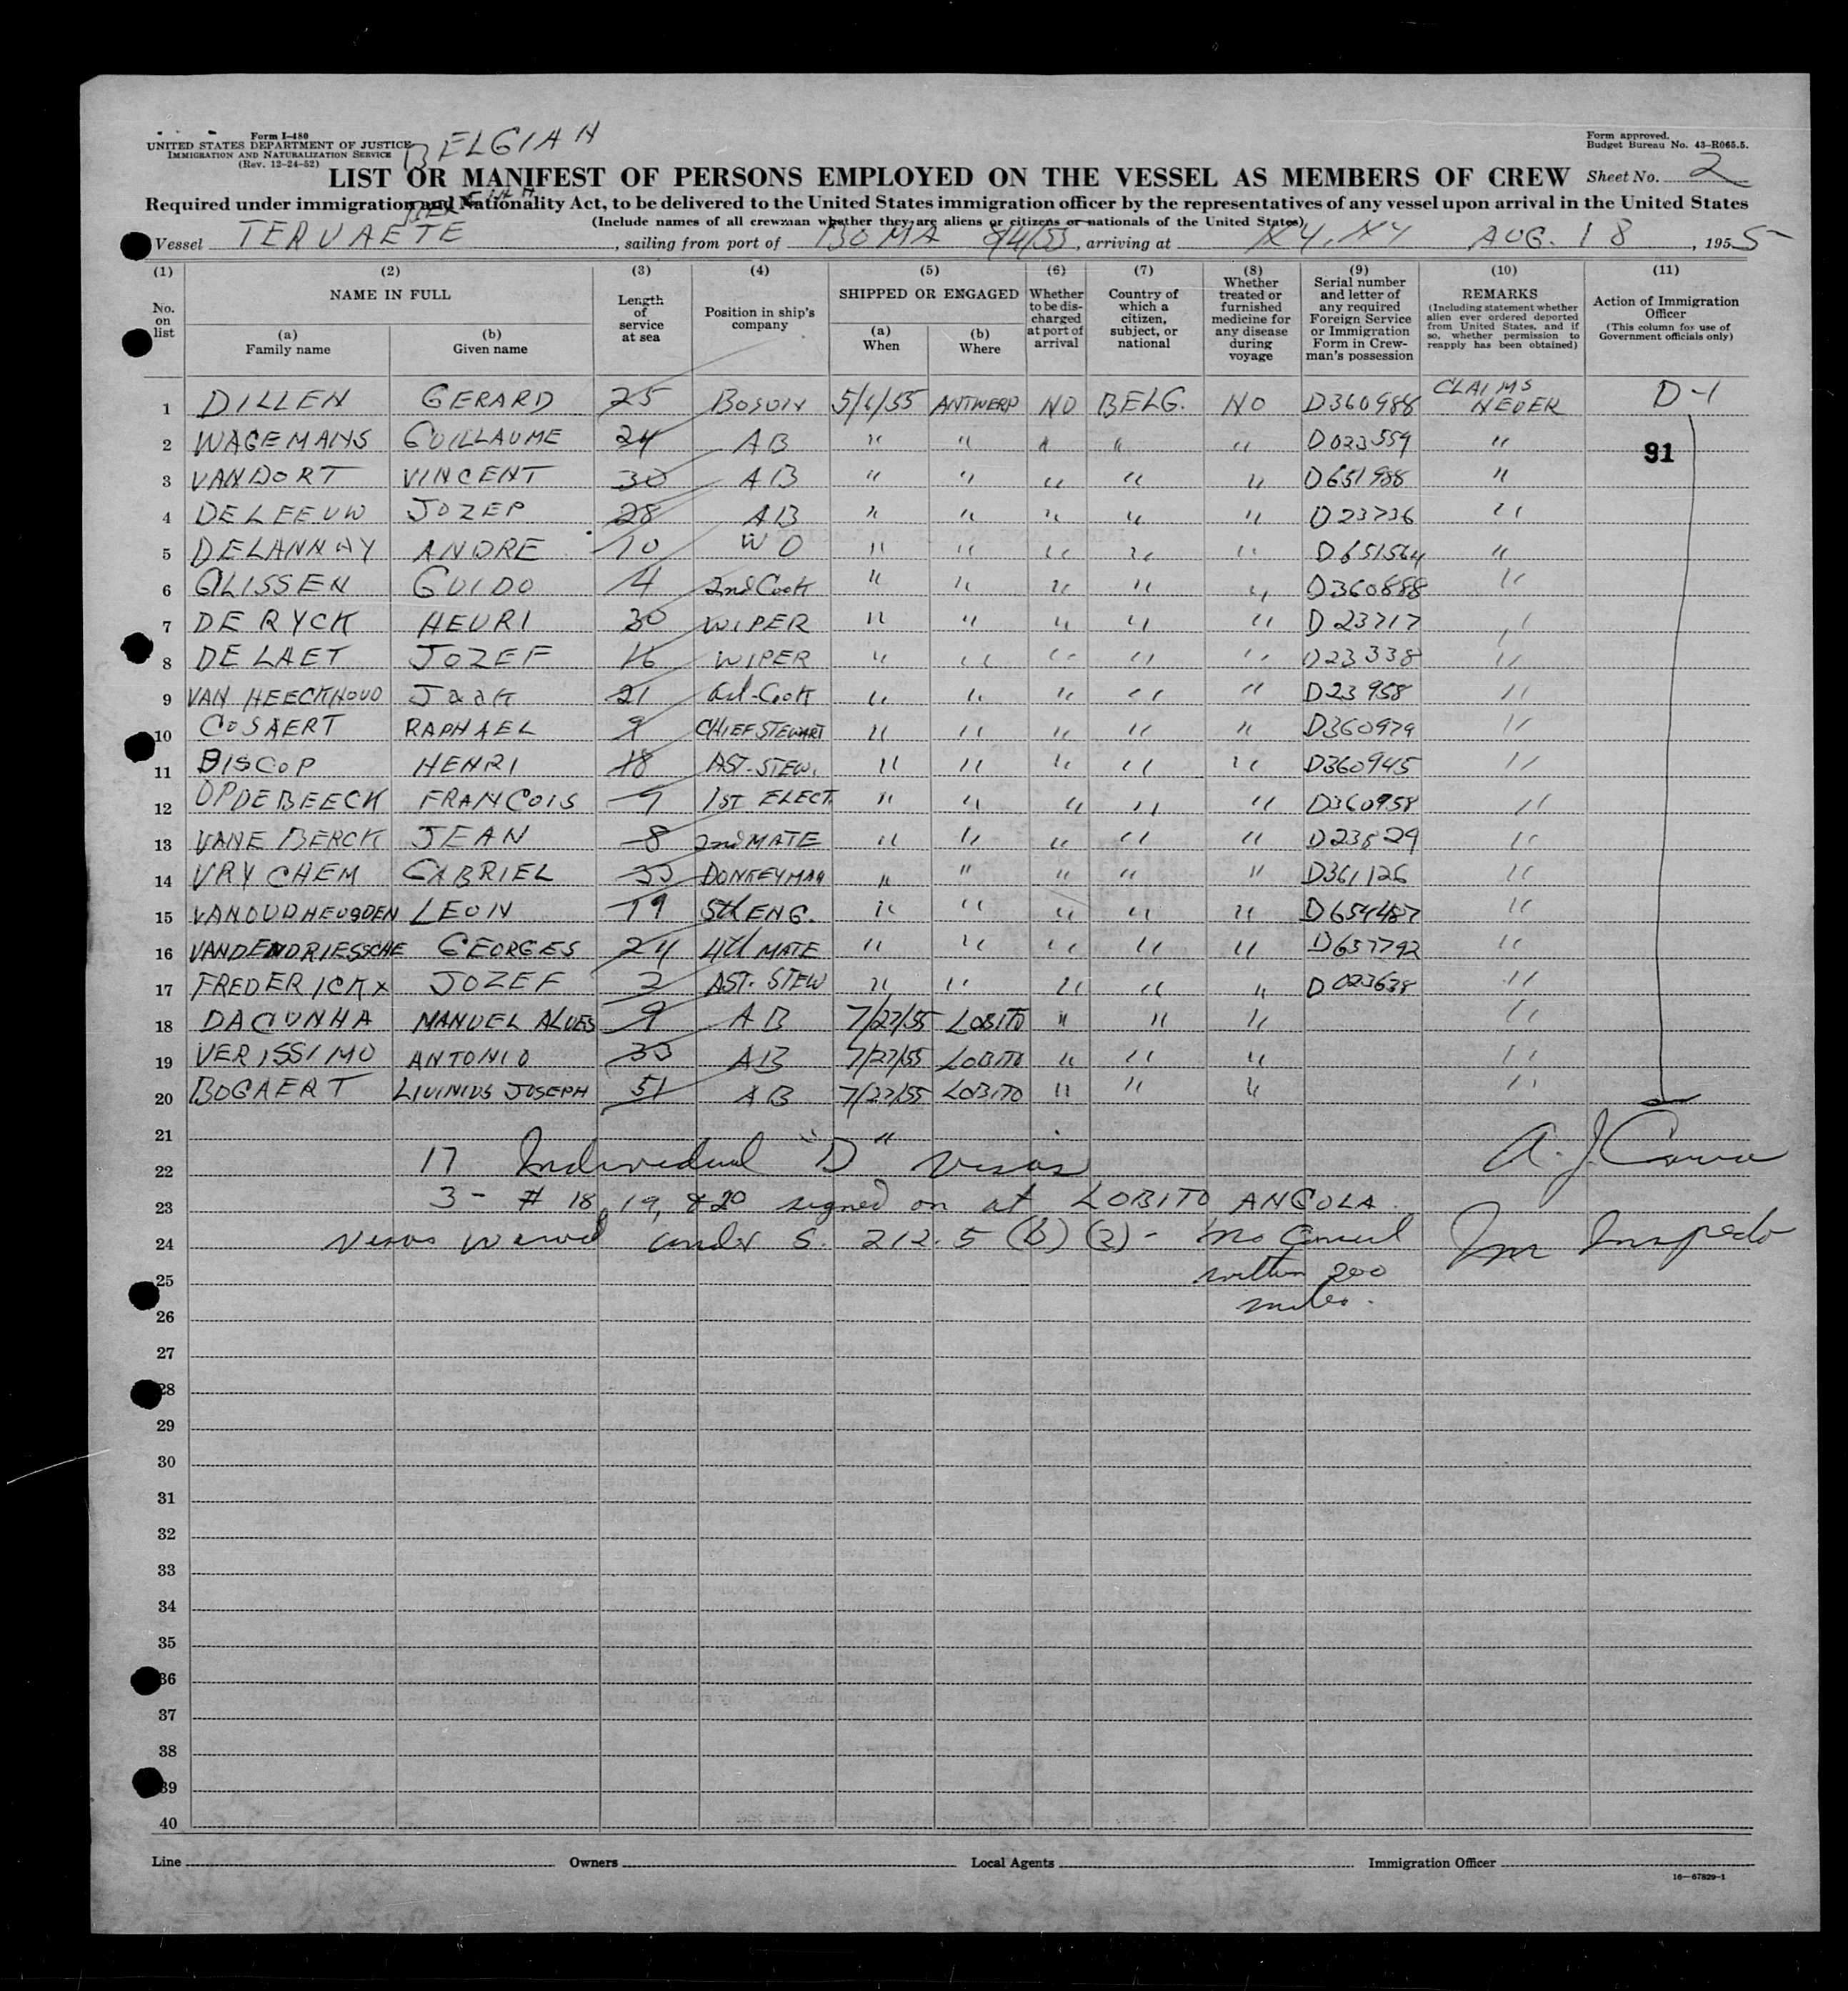 Form I-480
UNITED STATES DEPARTMENT OF JUSTICE
IMMIGRATION AND NATURALIZATION SERVICE
(Rev. 12-24-52)
BELGIAN
Form approved.
Budget Bureau No. 43-R065.5.
LIST OR MANIFEST OF PERSONS EMPLOYED ON THE VESSEL AS MEMBERS OF CREW Sheet No. 2
Required under immigration and Nationality Act, to be delivered to the United States immigration officer by the representatives of any vessel upon arrival in the United States
(Include names of all crewman whether they are aliens or citizens or nationals of the United States)
Vessel TERVAETE, sailing from port of BOMA 8/4/55, arriving at NY, NY AUG. 18, 1955
(1) No. on list
(2) NAME IN FULL (a) Family name (b) Given name
(3) Length of service at sea
(4) Position in ship's company
(5) SHIPPED OR ENGAGED (a) When (b) Where
(6) Whether to be discharged at port of arrival
(7) Country of which a citizen, subject, or national
(8) Whether treated or furnished medicine for any disease during voyage
(9) Serial number and letter of any required Foreign Service or Immigration Form in Crewman's possession
(10) REMARKS (Including statement whether alien ever ordered deported from United States, and if so, whether permission to reapply has been obtained)
(11) Action of Immigration Officer (This column for use of Government officials only)
1 DILLEN GERARD 25 BOSUN 5/6/55 ANTWERP NO BELG. NO D360988 CLAIMS NEVER D-1
2 WAGEMANS GUILLAUME 24 AB " " " " " D023559 " 91
3 VANDORT VINCENT 30 AB " " " " " D651988 "
4 DELEEUW JOZEP 28 AB " " " " " D23736 "
5 DELANNAY ANDRE 10 WO " " " " " D651564 "
6 GLISSEN GUIDO 4 2nd Cook " " " " " D360888 "
7 DERYCK HEURI 30 WIPER " " " " " D23717 "
8 DELAET JOZEF 16 WIPER " " " " " D23338 "
9 VAN HEECKHOUD JaaK 21 Cook " " " " " D23958 "
10 COSAERT RAPHAEL 9 CHIEF STEWART " " " " " D360979 "
11 BISCOP HENRI 18 AST. STEW. " " " " " D360945 "
12 OPDEBEECK FRANCOIS 9 1ST ELECT. " " " " " D360958 "
13 VANE BERCK JEAN 8 2nd MATE " " " " " D23829 "
14 VRYCHEM GABRIEL 33 DONKEYMAN " " " " " D361126 "
15 VANOUDHEUSDEN LEON 19 5th ENG. " " " " " D654487 "
16 VANDENDRIESSCHE GEORGES 24 4th MATE " " " " " D657792 "
17 FREDERICKX JOZEF 2 AST. STEW " " " " " D023638 "
18 DACUNHA MANUEL ALVES 9 AB 7/27/55 LOBITO " " " "
19 VERISSIMO ANTONIO 33 AB 7/27/55 LOBITO " " " "
20 BOGAERT LIVINIUS JOSEPH 51 AB 7/27/55 LOBITO " " " "
21
22 17 Individual "D" visas
23 3 - # 18, 19, & 20 signed on at LOBITO ANGOLA.
24 Visas waived under S. 212.5 (b) (2) - No Consul
25 within 200
26 miles.
Imm Inspector
27
28
29
30
31
32
33
34
35
36
37
38
39
40
Line Owners Local Agents Immigration Officer
16-67829-1